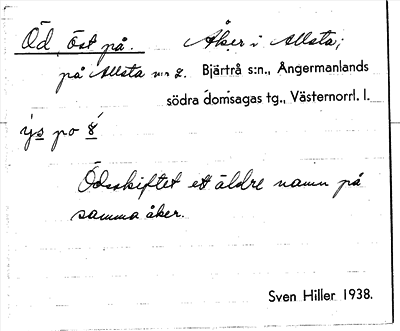 Öd, öst på. Åker i Allsta,
på Allsta nr 2. Bjärtrå s:n., Ångermanlands
södra domsagas tg., Västernorrl. l.
ýs po 8́
Ödsskiftet ett äldre namn på
samma åker.
Sven Hiller 1938.